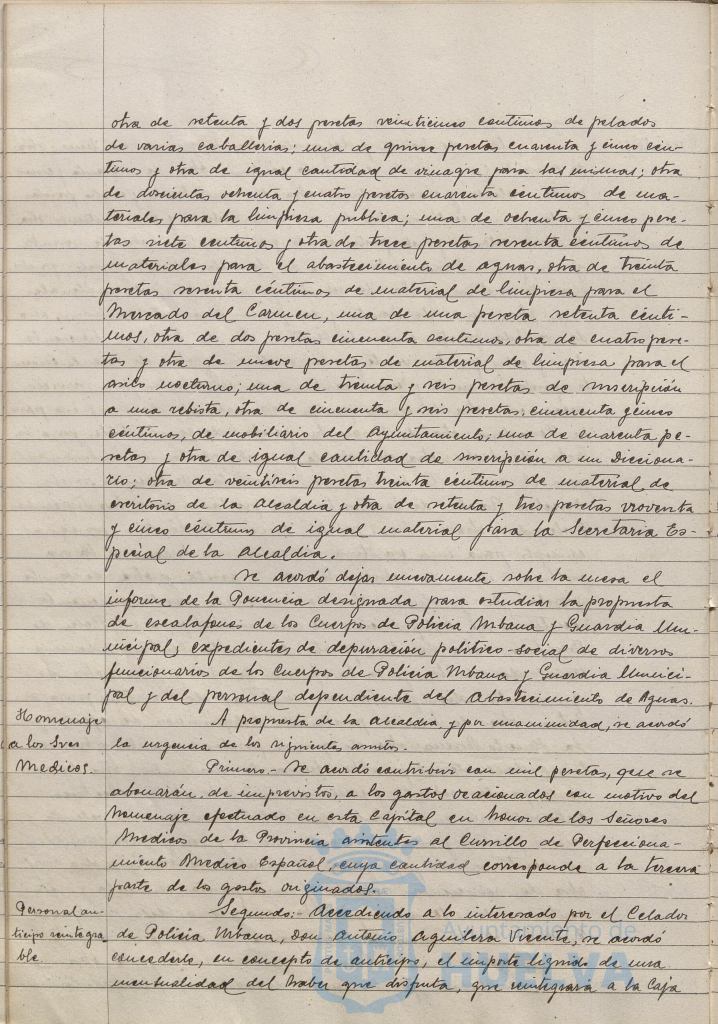 otra de setenta y dos pesetas veinticinco centimos de pelados
de varias caballerias; una de quince pesetas cuarenta y cinco cén-
timos y otra de igual cantidad de vinagre para las mismas; otra
de doscientas ochenta y cuatro pesetas cuarenta céntimos de ma-
teriales para la limpieza publica; una de ochenta y cinco pese-
tas siete centimos y otra de trece pesetas sesenta céntimos de
materiales para el abastecimiento de aguas, otra de treinta
pesetas sesenta céntimos de material de limpiesa para el
Mercado del Carmen, una de una peseta setenta cénti-
mos, otra de dos pesetas cincuenta centimos, otra de cuatro pese-
tas y otra de nueve pesetas de material de limpiesa para el
asilo nocturno; una de treinta y seis pesetas de suscripción
a una rebista, otra de cincuenta y seis pesetas, cincuenta y cinco
céntimos, de mobiliario del Ayuntamiento; una de cuarenta pe-
setas y otra de igual cantidad de suscripción a un Dicciona-
rio; otra de veintiseis pesetas treinta céntimos de material de
escritorio de la Alcaldia y otra de setenta y tres pesetas noventa
y cinco céntimos de igual material para la Secretaria Es-
pecial de la Alcaldia.
Se acordó dejar nuevamente sobre la mesa el
informe de la Ponencia designada para estudiar la propuesta
de escalafones de los Cuerpos de Policia Urbana y Guardia Mu-
nicipal, expedientes de depuración politico-social de diversos
funcionarios de los Cuerpos de Policia Urbana y Guardia Munici-
pal y del personal dependiente del Abastecimiento de Aguas.
Homenaje
a los Sres
Medicos.
A propuesta de la Alcaldia y por unanimidad, se acordó
la urgencia de los siguientes asuntos.
Primero.- Se acordó contribuir con mil pesetas, que se
abonarán, de imprevistos, a los gastos ocacionados con motivo del
homenaje efectuado en esta Capital en honor de los Señores
Medicos de la Provincia asistentes al Cursillo de Perfecciona-
miento Medico Español, cuya cantidad corresponde a la tercera
parte de los gastos originados.
Personal an-
ticipo reintegra-
ble.
Segundo:- Accediendo a lo interesado por el Celador
de Policia Urbana, Don Antonio Aguilera Vicente, se acordó
concederle, en concepto de anticipo, el importe liquido de una
mensualidad del haber que disfruta, que reintegrará a la Caja
Ayuntamiento de
HUELVA